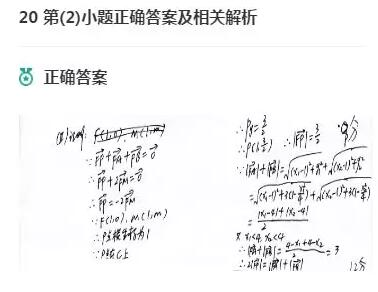 20 第(2)小题正确答案及相关解析
正确答案
∵F(1,0), M(1,m)
∵FP+FA+FB=0
∴FP+2FM=0
∴FP=-2FM
∵F(1,0), M(1,m)
∴P点横坐标为1
∵P在C上
∴P(1,3/2) ∴|FP|=3/2
∵|FA|+|FB|=√((x₁-1)²+y₁²)+√((x₂-1)²+y₂²)
=√((x₁-1)²+3(1-x₁²/4))+√((x₂-1)²+3(1-x₂²/4))
=(|x₁-4|+|x₂-4|)/2
又 x₁<4, x₂<4
∴|FA|+|FB|=(4-x₁+4-x₂)/2=3
∴2|FP|=|FA|+|FB|
12分